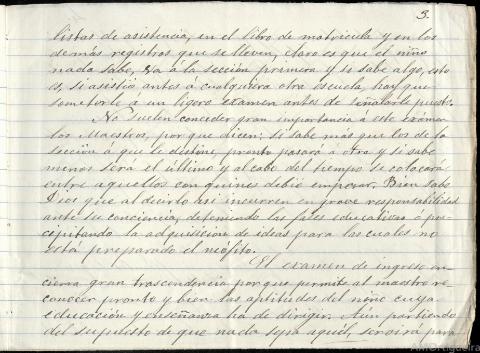 3.
listas de asistencia, en el libro de matrícula y en los
demás registros que se lleven, claro es que el niño
nada sabe, va á la sección primera y si sabe algo, esto
es, si asistió antes á cualquiera otra escuela, hay que
someterle á un ligero examen antes de señalarle puesto.
No suelen conceder gran importancia á este examen
los Maestros, porque dicen: si sabe más que los de la
sección á que le destine, pronto pasará á otra y si sabe
menos será el último y al cabo del tiempo se colocará
entre aquellos con quienes debió empezar. Bien sabe
Dios que al decirlo así incurren en grave responsabilidad
ante su conciencia, deteniendo las fases educativas ó pre-
cipitando la adquisición de ideas para las cuales no
está preparado el neófito.
El examen de ingreso en-
cierra gran trascendencia porque permite al maestro re-
conocer pronto y bien las aptitudes del niño cuya
educación y enseñanza ha de dirigir. Aún partiendo
del supuesto de que nada sepa aquél, servirá para